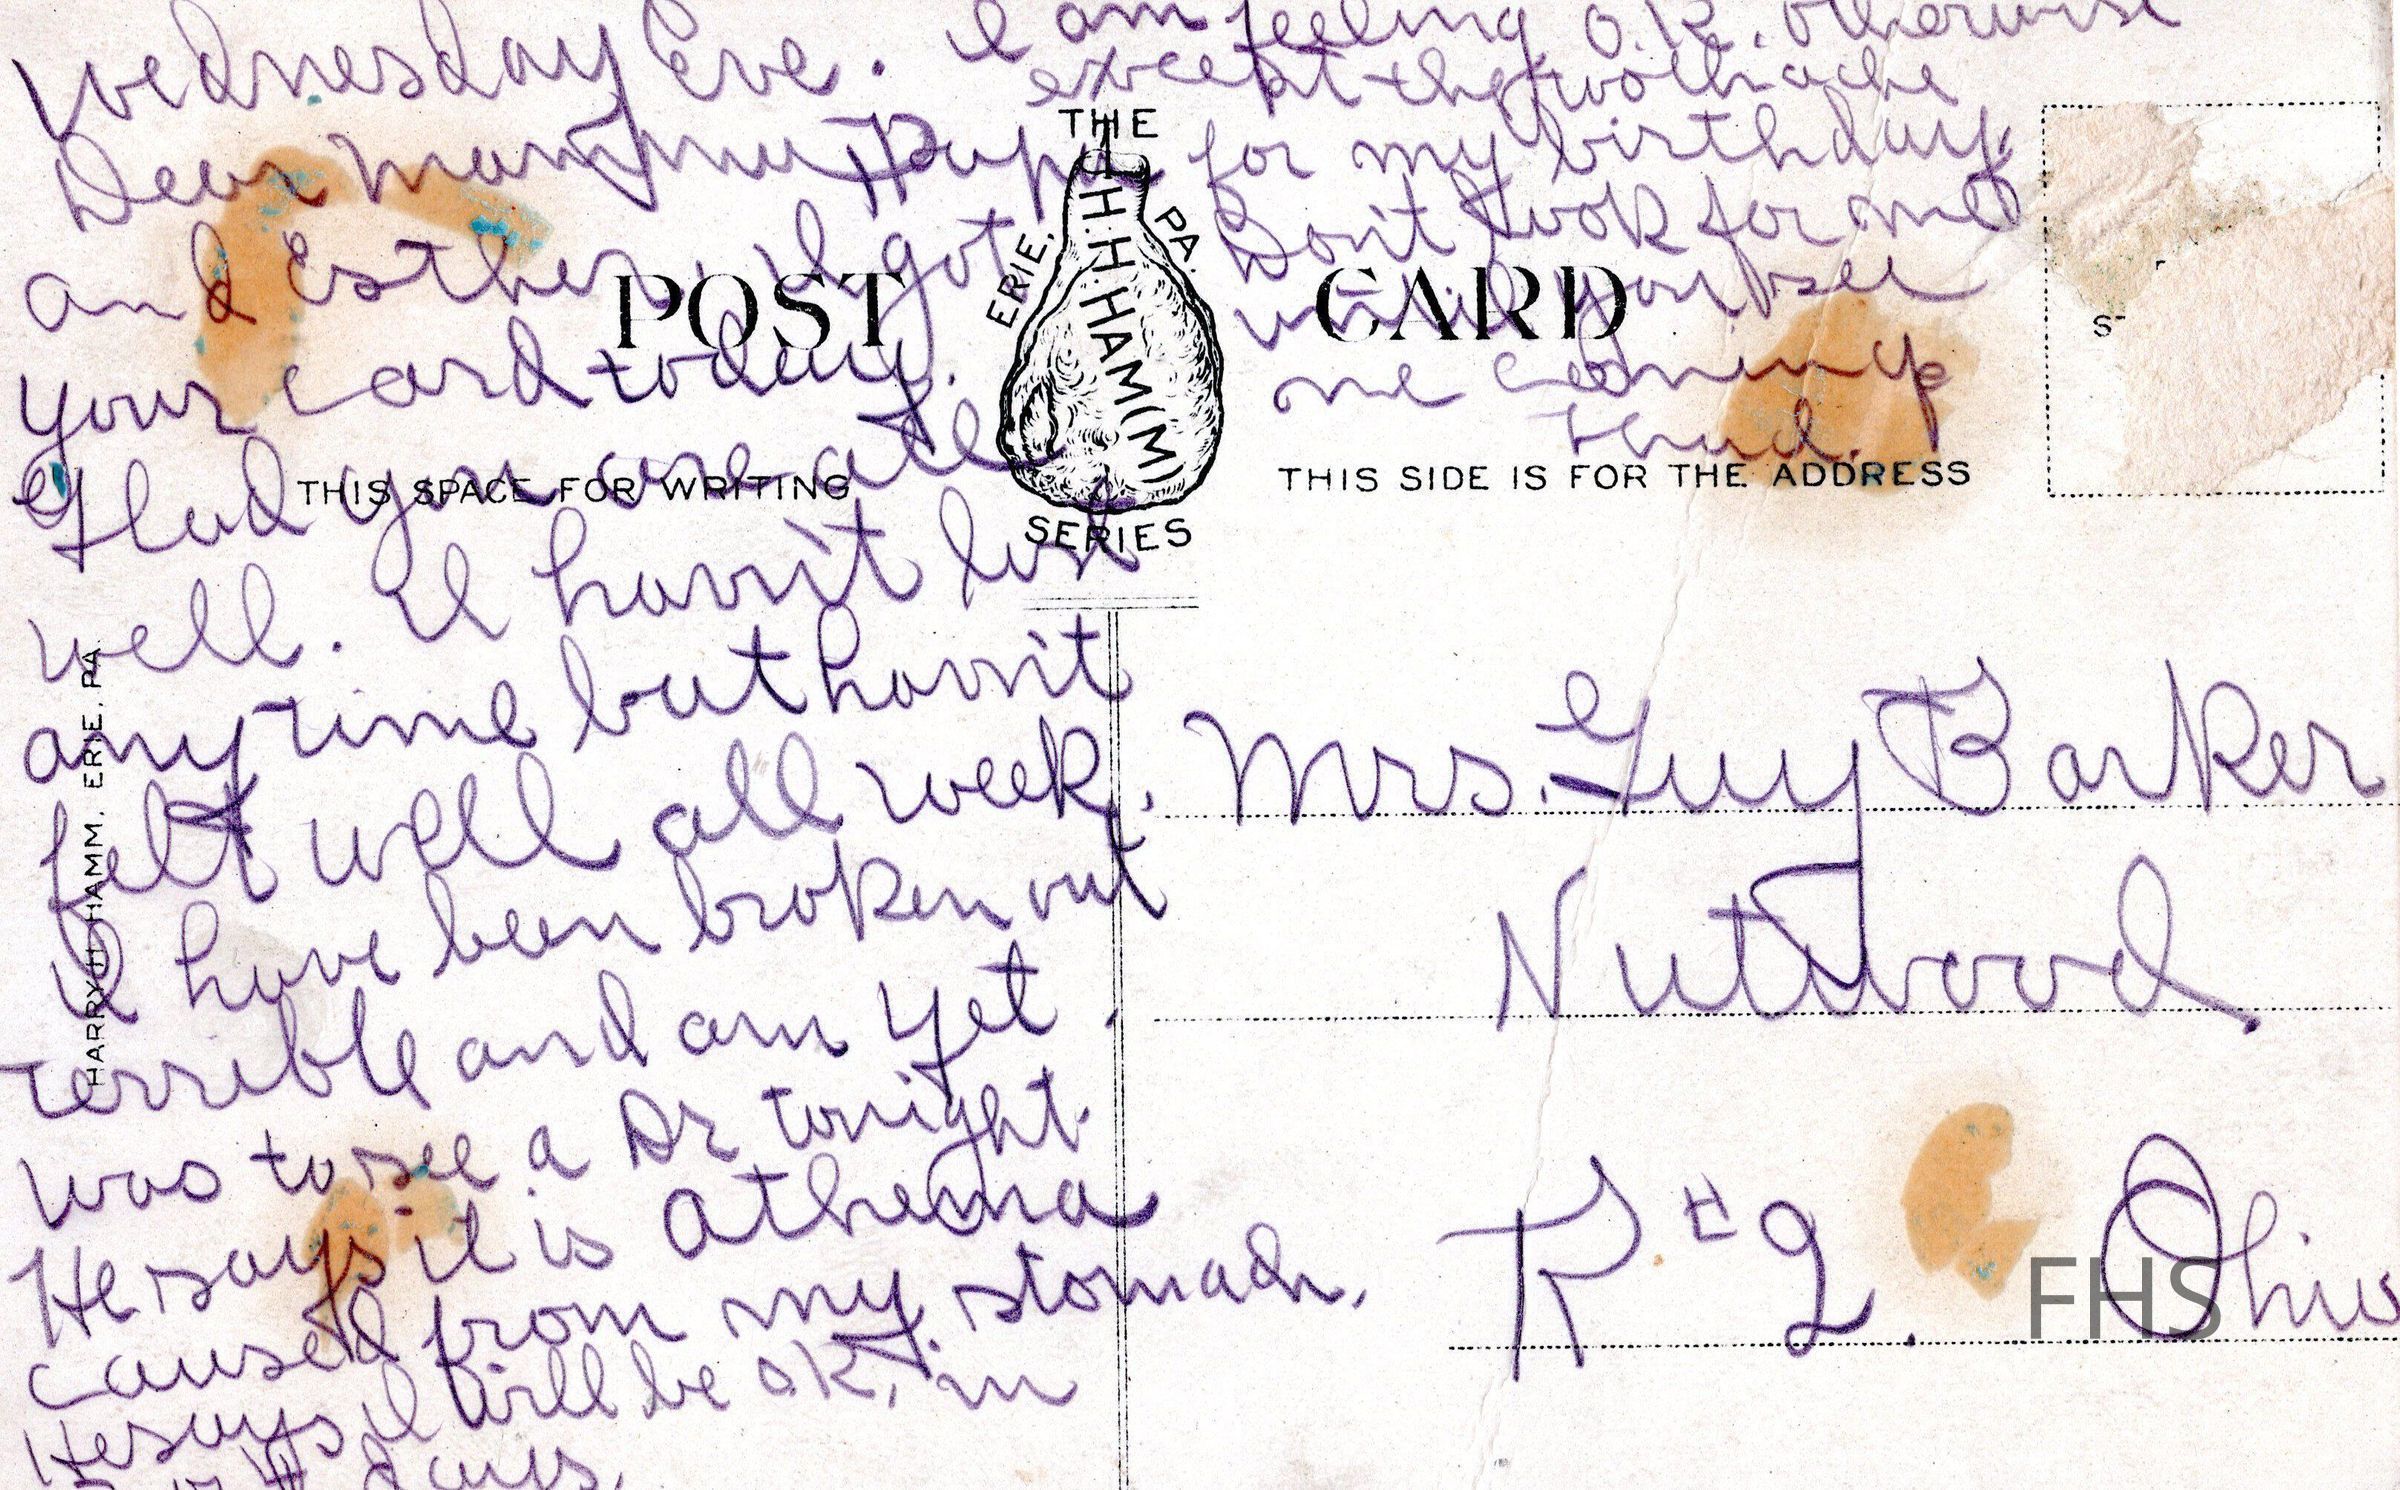 Wednesday Eve.
Dear Mamma, Papa
and Esther. I got
your card today.
Glad you are all
well. I havn't lost
any time but havn't
felt well all week.
I have been broken out
terrible and am yet.
Was to see a Dr tonight.
He says it is
caused from my stomach.
He says I will be OK. in
days.
I am feeling O.K. otherwise
except the toothache
for my birthday.
Don't look for me
until you see
me coming
THE
H.H.HAM(M)
ERIE, PA.
SERIES
POST CARD
THIS SPACE FOR WRITING
THIS SIDE IS FOR THE ADDRESS
HARRY H. HAMM, ERIE, PA.
S
Mrs. Guy Barker
Nutwood
R #2. Ohio
FHS